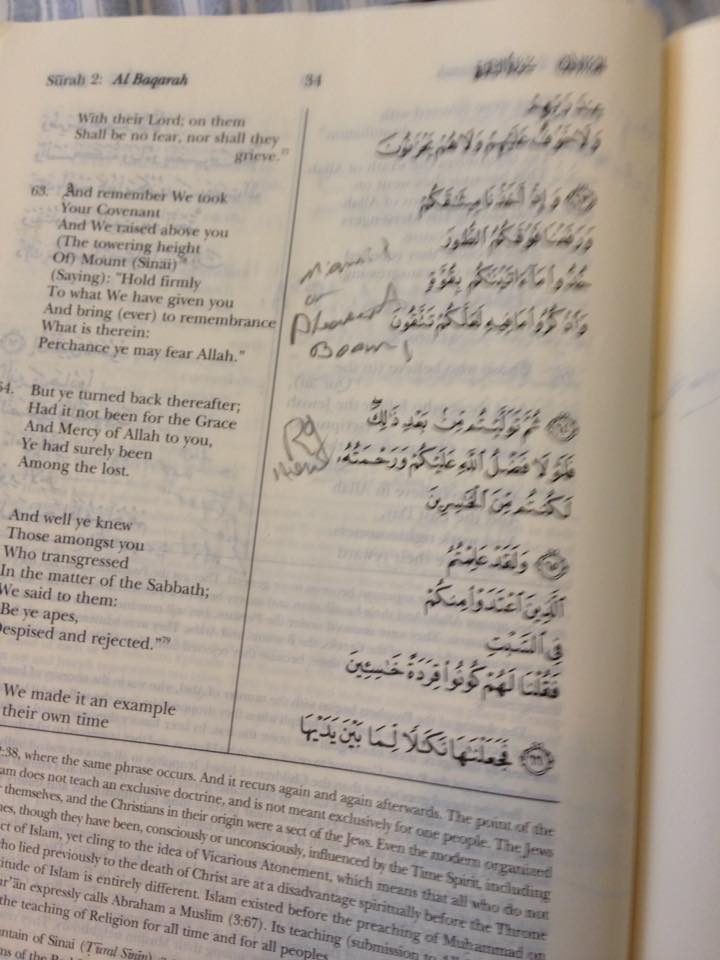 Sūrah 2: Al Baqarah
34
With their Lord; on them
Shall be no fear, nor shall they
grieve."
63. And remember We took
Your Covenant
And We raised above you
(The towering height
Of) Mount (Sinai)
(Saying): "Hold firmly
To what We have given you
And bring (ever) to remembrance
What is therein:
Perchance ye may fear Allah."
64. But ye turned back thereafter;
Had it not been for the Grace
And Mercy of Allah to you,
Ye had surely been
Among the lost.
And well ye knew
Those amongst you
Who transgressed
In the matter of the Sabbath;
We said to them:
Be ye apes,
Despised and rejected."79
We made it an example
their own time
عِندَ رَبِّهِمْ
وَلَا خَوْفٌ عَلَيْهِمْ وَلَا هُمْ يَحْزَنُونَ
وَإِذْ أَخَذْنَا مِيثَٰقَكُمْ
وَرَفَعْنَا فَوْقَكُمُ ٱلطُّورَ
خُذُوا۟ مَآ ءَاتَيْنَٰكُم بِقُوَّةٍ
وَٱذْكُرُوا۟ مَا فِيهِ لَعَلَّكُمْ تَتَّقُونَ
٦٤ ثُمَّ تَوَلَّيْتُم مِّنۢ بَعْدِ ذَٰلِكَ
فَلَوْلَا فَضْلُ ٱللَّهِ عَلَيْكُمْ وَرَحْمَتُهُۥ
لَكُنتُم مِّنَ ٱلْخَٰسِرِينَ
٦٥ وَلَقَدْ عَلِمْتُمُ
ٱلَّذِينَ ٱعْتَدَوْا۟ مِنكُمْ
فِى ٱلسَّبْتِ
فَقُلْنَا لَهُمْ كُونُوا۟ قِرَدَةً خَٰسِـِٔينَ
٦٦ فَجَعَلْنَٰهَا نَكَٰلًا لِّمَا بَيْنَ يَدَيْهَا
or
Boom!
:38, where the same phrase occurs. And it recurs again and again afterwards. The point of the
am does not teach an exclusive doctrine, and is not meant exclusively for one people. The Jews
themselves, and the Christians in their origin were a sect of the Jews. Even the modern organized
es, though they have been, consciously or unconsciously, influenced by the Time Spirit, including
ct of Islam, yet cling to the idea of Vicarious Atonement, which means that all who do not
ho lied previously to the death of Christ are at a disadvantage spiritually before the Throne
titude of Islam is entirely different. Islam existed before the preaching of Muhammad on
ur'ān expressly calls Abraham a Muslim (3:67). Its teaching (submission to
the teaching of Religion for all time and for all peoples
untain of Sinai (Ṭūral Sīnīn)